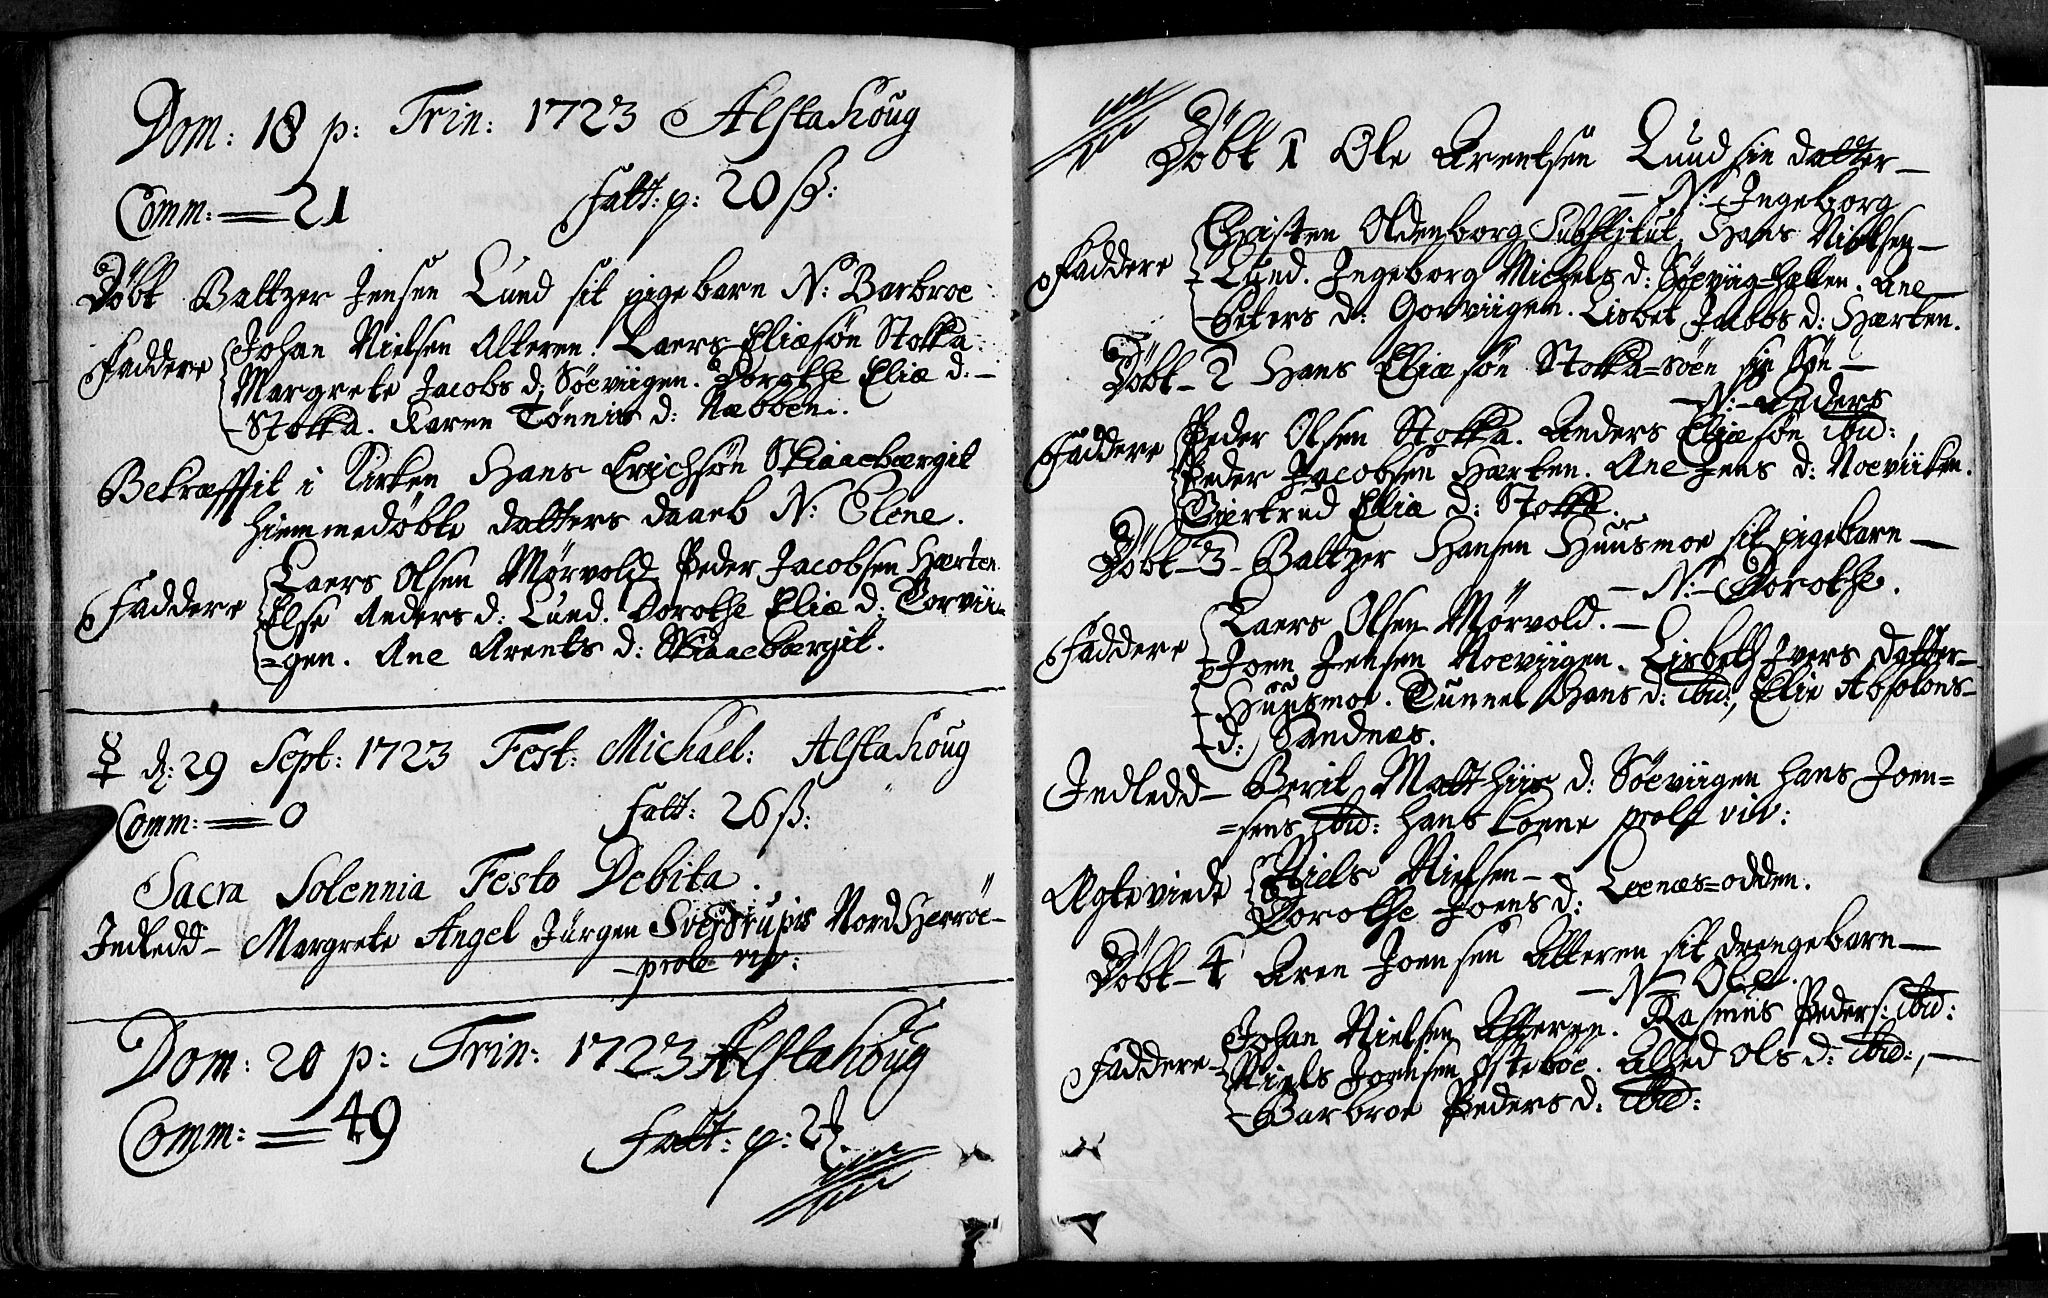 Dom: 18 p: Trin: 1723 Alstahoug
Comm: = 21 Falt: p: 20 ß:
Döbt Baltzer Jensen Lund sit pigebarn N: Barbroe
Faddere Johan Nielsen Alteren. Laers Eliæsøn Stokka.
Margrete Jacobs d: Søeviigen. Dorothe Eliæ d: –
– Stokka. Karen Tønnis d: Næbben.
Bekræfftit i Kirken Hans Erichsøn Skiaebergit
hiemmedøbte datters daab N: Elene.
Faddere Laers Olsen Mørvold Peder Jacobsen Hærten.
Else Anders d: Lund. Dorothe Eliæ d: Torvii-
=gen. Ane Arents d: Skiaebergit.
☿ d: 29 Sept: 1723 Fest: Michael: Alstahoug
Comm: = 0 Falt: 26 ß:
Sacra Solennia Festo Debita.
Indledd – Margrete Angel Jürgen Svejdrups Nord Herrøe –
– prole viv:
Dom: 20 p: Trin: 1723 Alstahoug
Comm: = 49 Falt: p: 2
Döbt 1 Ole Arentsen Lund sin datter –
– N: Ingeborg
Faddere Christen Oldenborg Substitut, Hans Nielsen –
– Lund. Ingeborg Michels d: Søeviig=hallen. Ane –
– Peters d: Gorviigen. Lisbet Jacobs d: Hærten.
Döbt – 2 Hans Eliæsøn Stokka=søen sin Søn –
– N: – Anders
Faddere Peder Olsen Stokka. Anders Eliæsøn ibid:
Peder Jacobsen Hærten. Ane Jens d: Noeviiken.
Giertrud Eliæ d: Stokka.
Döbt – 3 – Baltzer Hansen Huusmoe sit pigebarn –
– N: – Dorothe.
Faddere Laers Olsen Mørvold. –
– Joen Jensen Noeviigen. Lisbeth Ivers datter –
– Huusmoe. Tunnel Hans d: ibid:, Elie Absolons –
– d: Sandnæs.
Indledd – Berit Matthiis d: Søeviigen Hans Joen=
=sens ibid: hans kone prole viv:
Agteviede Niels Nielsen –
Dorothe Joens d: Leenæs=odden.
Döbt – 4 Aren Joensen Alteren sit drengebarn –
– N: Ole.
Faddere – Johan Nielsen Alteren. Rasmus Peders: ibid:
Niels Jonsen Østebøe. Alhed Ols d: ibid:, –
– Barbroe Peders d: ibid: